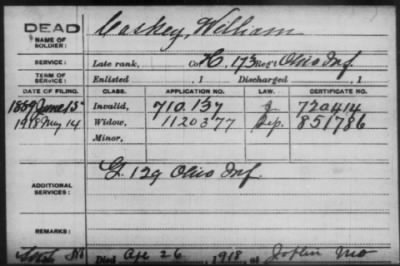 DEAD
NAME OF SOLDIER:
Caskey, William
SERVICE:
Late rank, Co. H, 173 Reg't Ohio Inf.
TERM OF SERVICE:
Enlisted , 1 Discharged , 1
DATE OF FILING. CLASS. APPLICATION NO. LAW. CERTIFICATE NO.
1889 June 15 Invalid, 710.137 720414
1918 May 14 Widow, 1120377 851786
Minor,
ADDITIONAL SERVICES:
G. 129 Ohio Inf.
REMARKS:
Died Apr 26, 1918, at Joplin Mo